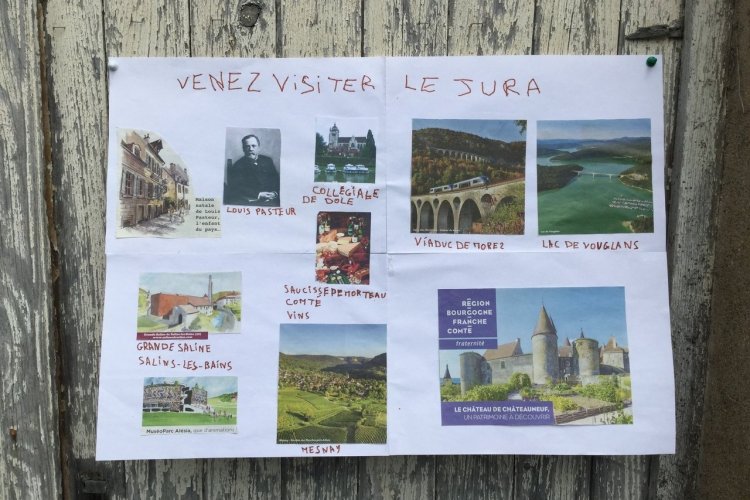 VENEZ VISITER LE JURA
Maison
natale
de Louis
Pasteur,
l'enfant
du pays...
LOUIS PASTEUR
COLLÉGIALE
DE DOLE
VIADUC DE MOREZ
LAC DE VOUGLANS
SAUCISSE DE MORTEAU
COMTÉ
VINS
GRANDE SALINE
SALINS-LES-BAINS
MuséoParc Alésia, que d'animations!
MESNAY
RÉGION
BOURGOGNE
FRANCHE
COMTÉ
fraternité
LE CHÂTEAU DE CHÂTEAUNEUF,
UN PATRIMOINE À DÉCOUVRIR